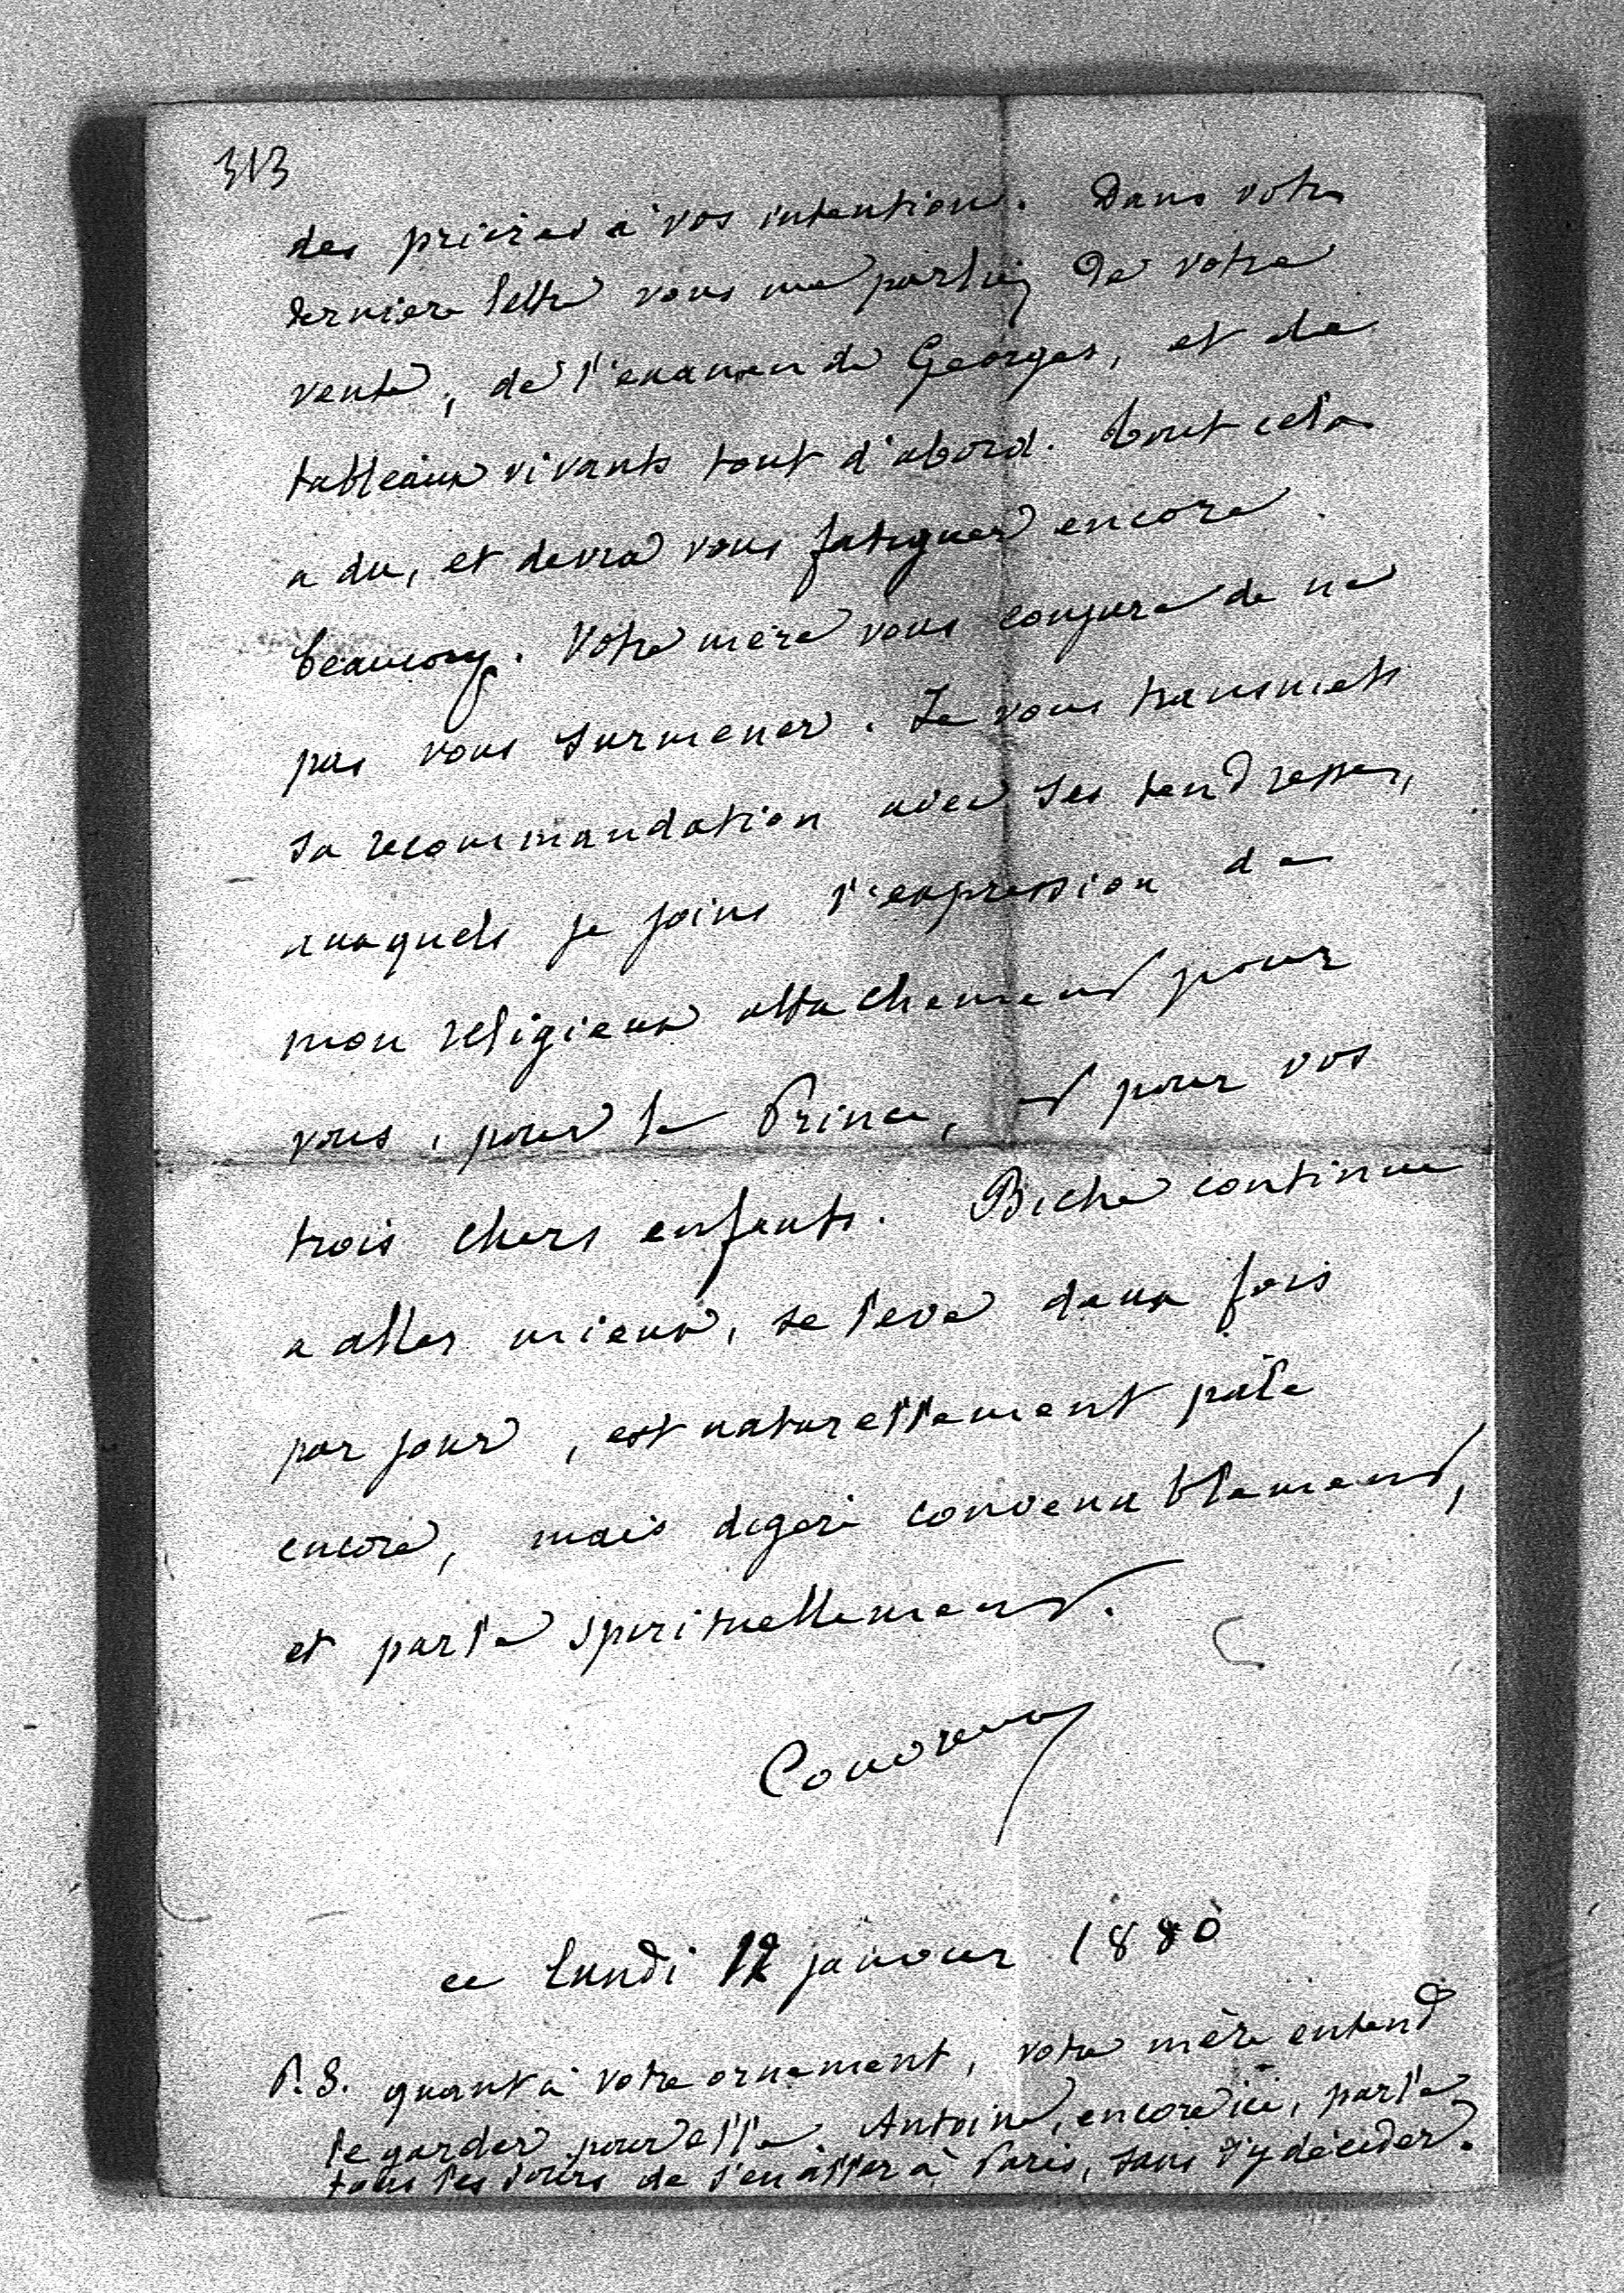 313
des prières à vos intention. Dans votre
dernière lettre vous me parliez de votre
vente, de l'examen de Georges, et de
tableaux vivants tout d'abord. Tout cela
a du, et devra vous fatiguer encore
beaucoup. Votre mère vous conjure de ne
pas vous surmener. Je vous transmets
sa recommandation avec ses tendresses,
auxquels je joins l'expression de
mon religieux attachement pour
vous, pour le Prince, et pour vos
trois chers enfants. Biche continue
a aller mieux, se leve deux fois
par jour, est naturellement pâle
encore, mais digère convenablement,
et parle spirituellement.
ce lundi 12 janvier 1880
P.S. quant à votre ornement, votre mère entend
le garder pour elle. Antoine, encore ici, parle
tous les jours de s'en aller à Paris, sans s'y décider.